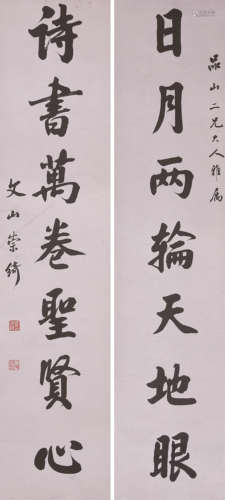 品山二兄大人雅屬
日月两輪天地眼
詩書萬卷聖賢心
文山崇綺